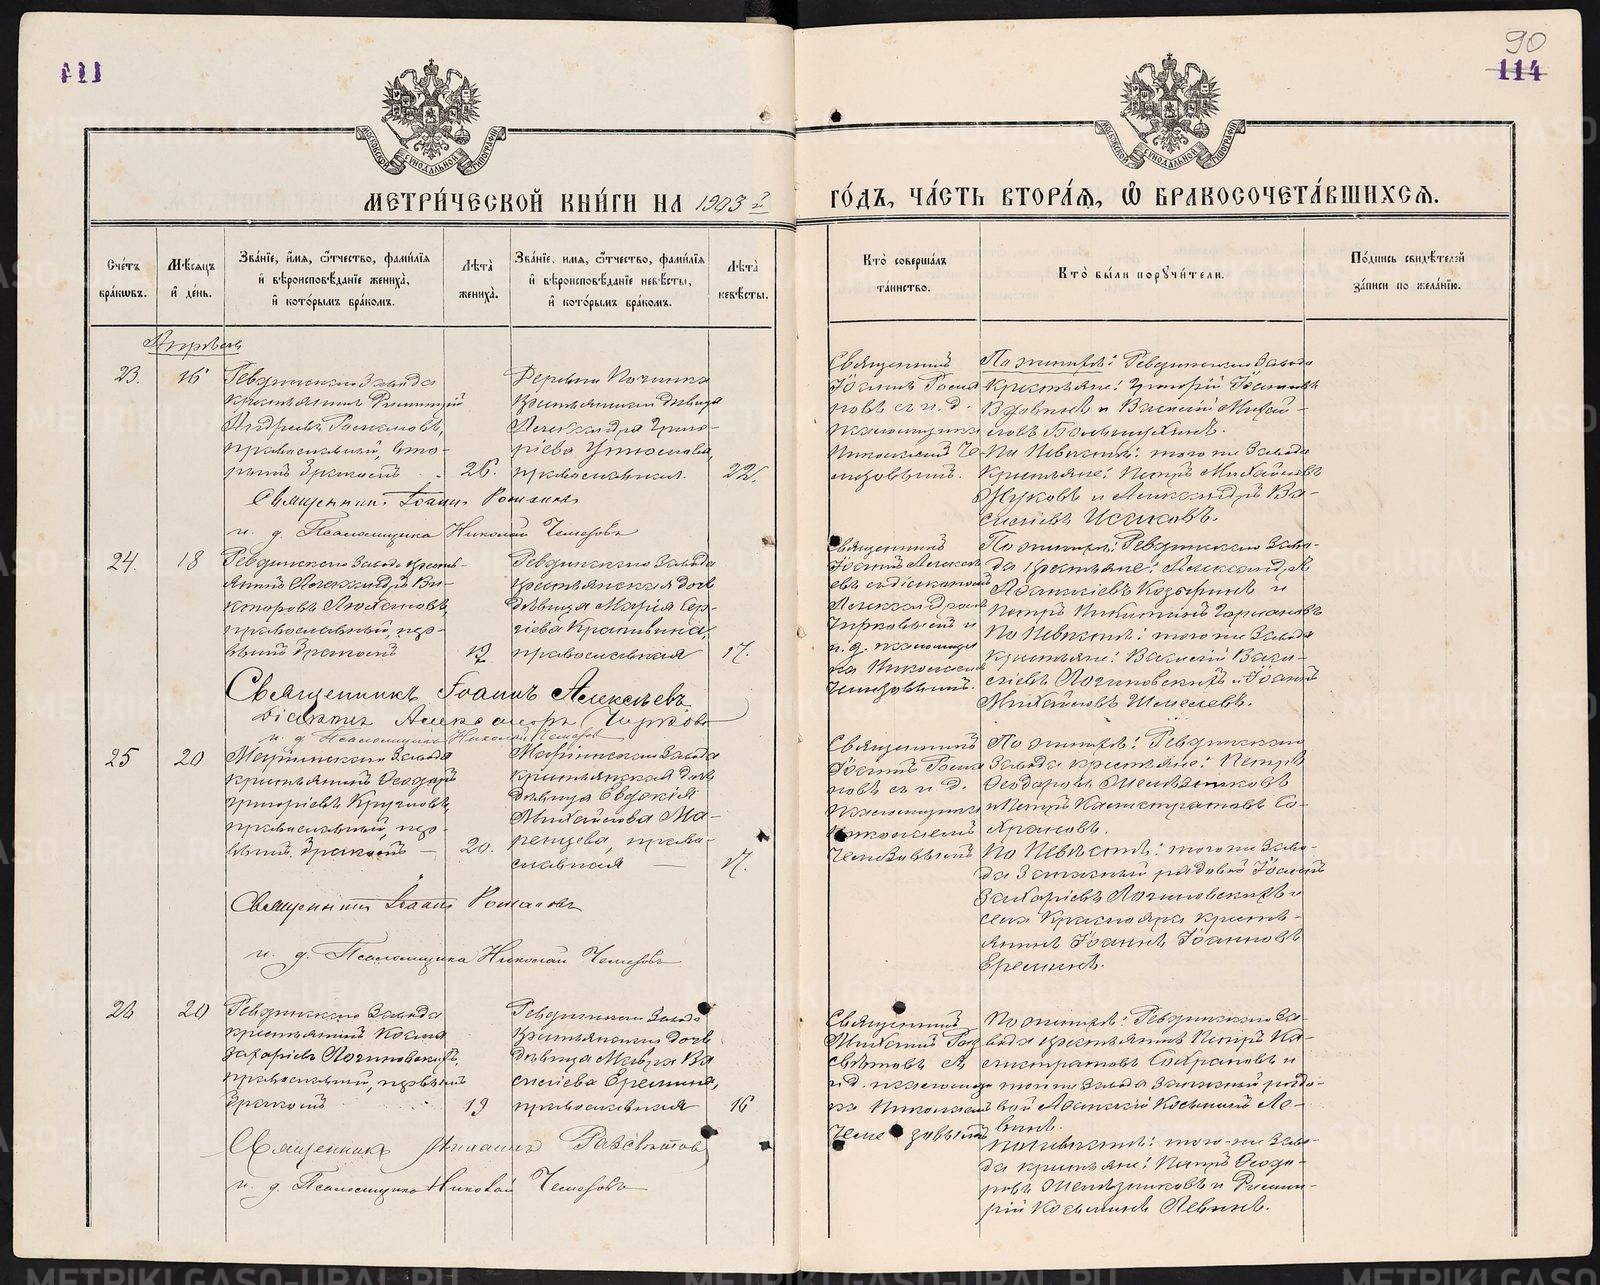 111
90
114
МЕТРИ́ЧЕСКОЙ КНИ́ГИ НА 1903 й
ГО́ДЪ, ЧА́СТЬ ВТОРА́Ѧ, Ѡ҆ БРАКОСОЧЕТА́ВШИХСѦ.
Сче́тъ
бра́кѡвъ.
Мѣ́сяцъ
и҆ де́нь.
Зва́нїе, и҆́мя, ѻ҆́тчество, фами́лїя
и҆ вѣроисповѣ́данїе жениха̀,
и҆ кото́рымъ бра́комъ.
Лѣ́та
жениха̀.
Зва́нїе, и҆́мя, ѻ҆́тчество, фами́лїя
и҆ вѣроисповѣ́данїе невѣ́сты,
и҆ кото́рымъ бра́комъ.
Лѣ́та
невѣ́сты.
Кто̀ соверша́лъ
та́инство.
Кто̀ бы́ли порꙋчи́тели.
По́дпись свидѣ́телей
за́писи по жела́нїю.
Апрѣль
23.
16
Ревдинскаго Завода
крестьянинъ Димитрій
Андреевъ Романовъ,
православный, вто-
рымъ бракомъ
26.
Деревни Починка
крестьянская дѣвица
Александра Григо-
ріева
православная.
22.
Священникъ Іоаннъ
Романовъ съ и. д.
псаломщика
Николаемъ Че-
мезовымъ.
По женихѣ: Ревдинскаго Завода
крестьяне: Григорій Іоанновъ
Вдовинъ и Василій Михай-
ловъ
По Невѣстѣ: того же Завода
крестьяне: Петръ Михайловъ
Жуковъ и Александръ Ва-
сильевъ Исаковъ.
Священникъ Іоаннъ Романовъ
и. д. Псаломщика Николай Чемезовъ
24.
18
Ревдинскаго Завода крестья-
нинъ Александръ Вик-
торовъ
православный, пер-
вымъ бракомъ
19
Ревдинскаго Завода
крестьянская дочь
дѣвица Марія Сер-
гіева Крапивина,
православная
17.
Священникъ
Іоаннъ Алексѣ-
евъ съ діакономъ
Александромъ
Чирковымъ и
и. д. псаломщи-
ка Николаемъ
Чемезовымъ.
По женихѣ: Ревдинскаго Заво-
да крестьяне: Александръ
Петръ Никитинъ
По Невѣстѣ: того же Завода
крестьяне: Василій Васи-
льевъ Логиновскихъ и Іоаннъ
Михайловъ Шемелевъ.
Священникъ Іоаннъ Алексѣевъ
Діаконъ Александръ Чирковъ
и. д. Псаломщика Николай Чемезовъ
25
20
Маріинскаго Завода
крестьянинъ Ѳеодоръ
Григоріевъ Кругловъ,
православный, пер-
вымъ бракомъ —
20.
Маріинскаго Завода
крестьянская дочь
дѣвица Евдокія
Михайлова Ма-
ренцева, право-
славная —
17.
Священникъ
Іоаннъ Рома-
новъ съ и. д.
псаломщика
Николаемъ
Чемезовымъ
По женихѣ: Ревдинскаго
Завода крестьяне: Петръ
Ѳеодоровъ Желѣзниковъ
и Петръ Калистратовъ Со-
храновъ.
По Невѣстѣ: того же Заво-
да Запасный рядовой Іоаннъ
Захаріевъ Логиновскихъ и
села Краснояра крестья-
нинъ Іоаннъ Іоанновъ
Ереминъ.
Священникъ Іоаннъ Романовъ
и. д. Псаломщика Николай Чемезовъ
26
20
Ревдинскаго Завода
крестьянинъ Косма
Захаріевъ Логиновскихъ,
православный, первымъ
бракомъ
19
Ревдинскаго Завода
крестьянская дочь
дѣвица Мавра Ва-
сильева Еремина,
православная
16
Священникъ
Михаилъ Раз-
свѣтовъ съ
и. д. псаломщи-
ка Николаемъ
Чемезовымъ
По женихѣ: Ревдинскаго За-
вода крестьянинъ Петръ Ка-
листратовъ Сохрановъ и
того же Завода Запасный рядо-
вой Аѳанасій Косьминъ Ле-
винъ.
По Невѣстѣ: того-же Заво-
да крестьяне: Петръ Ѳеодо-
ровъ Желѣзниковъ и Димит-
рій Косьминъ Левинъ.
Священникъ Михаилъ Разсвѣтовъ
и. д. Псаломщика Николай Чемезовъ
METRIKI.GASO-URAL.RU